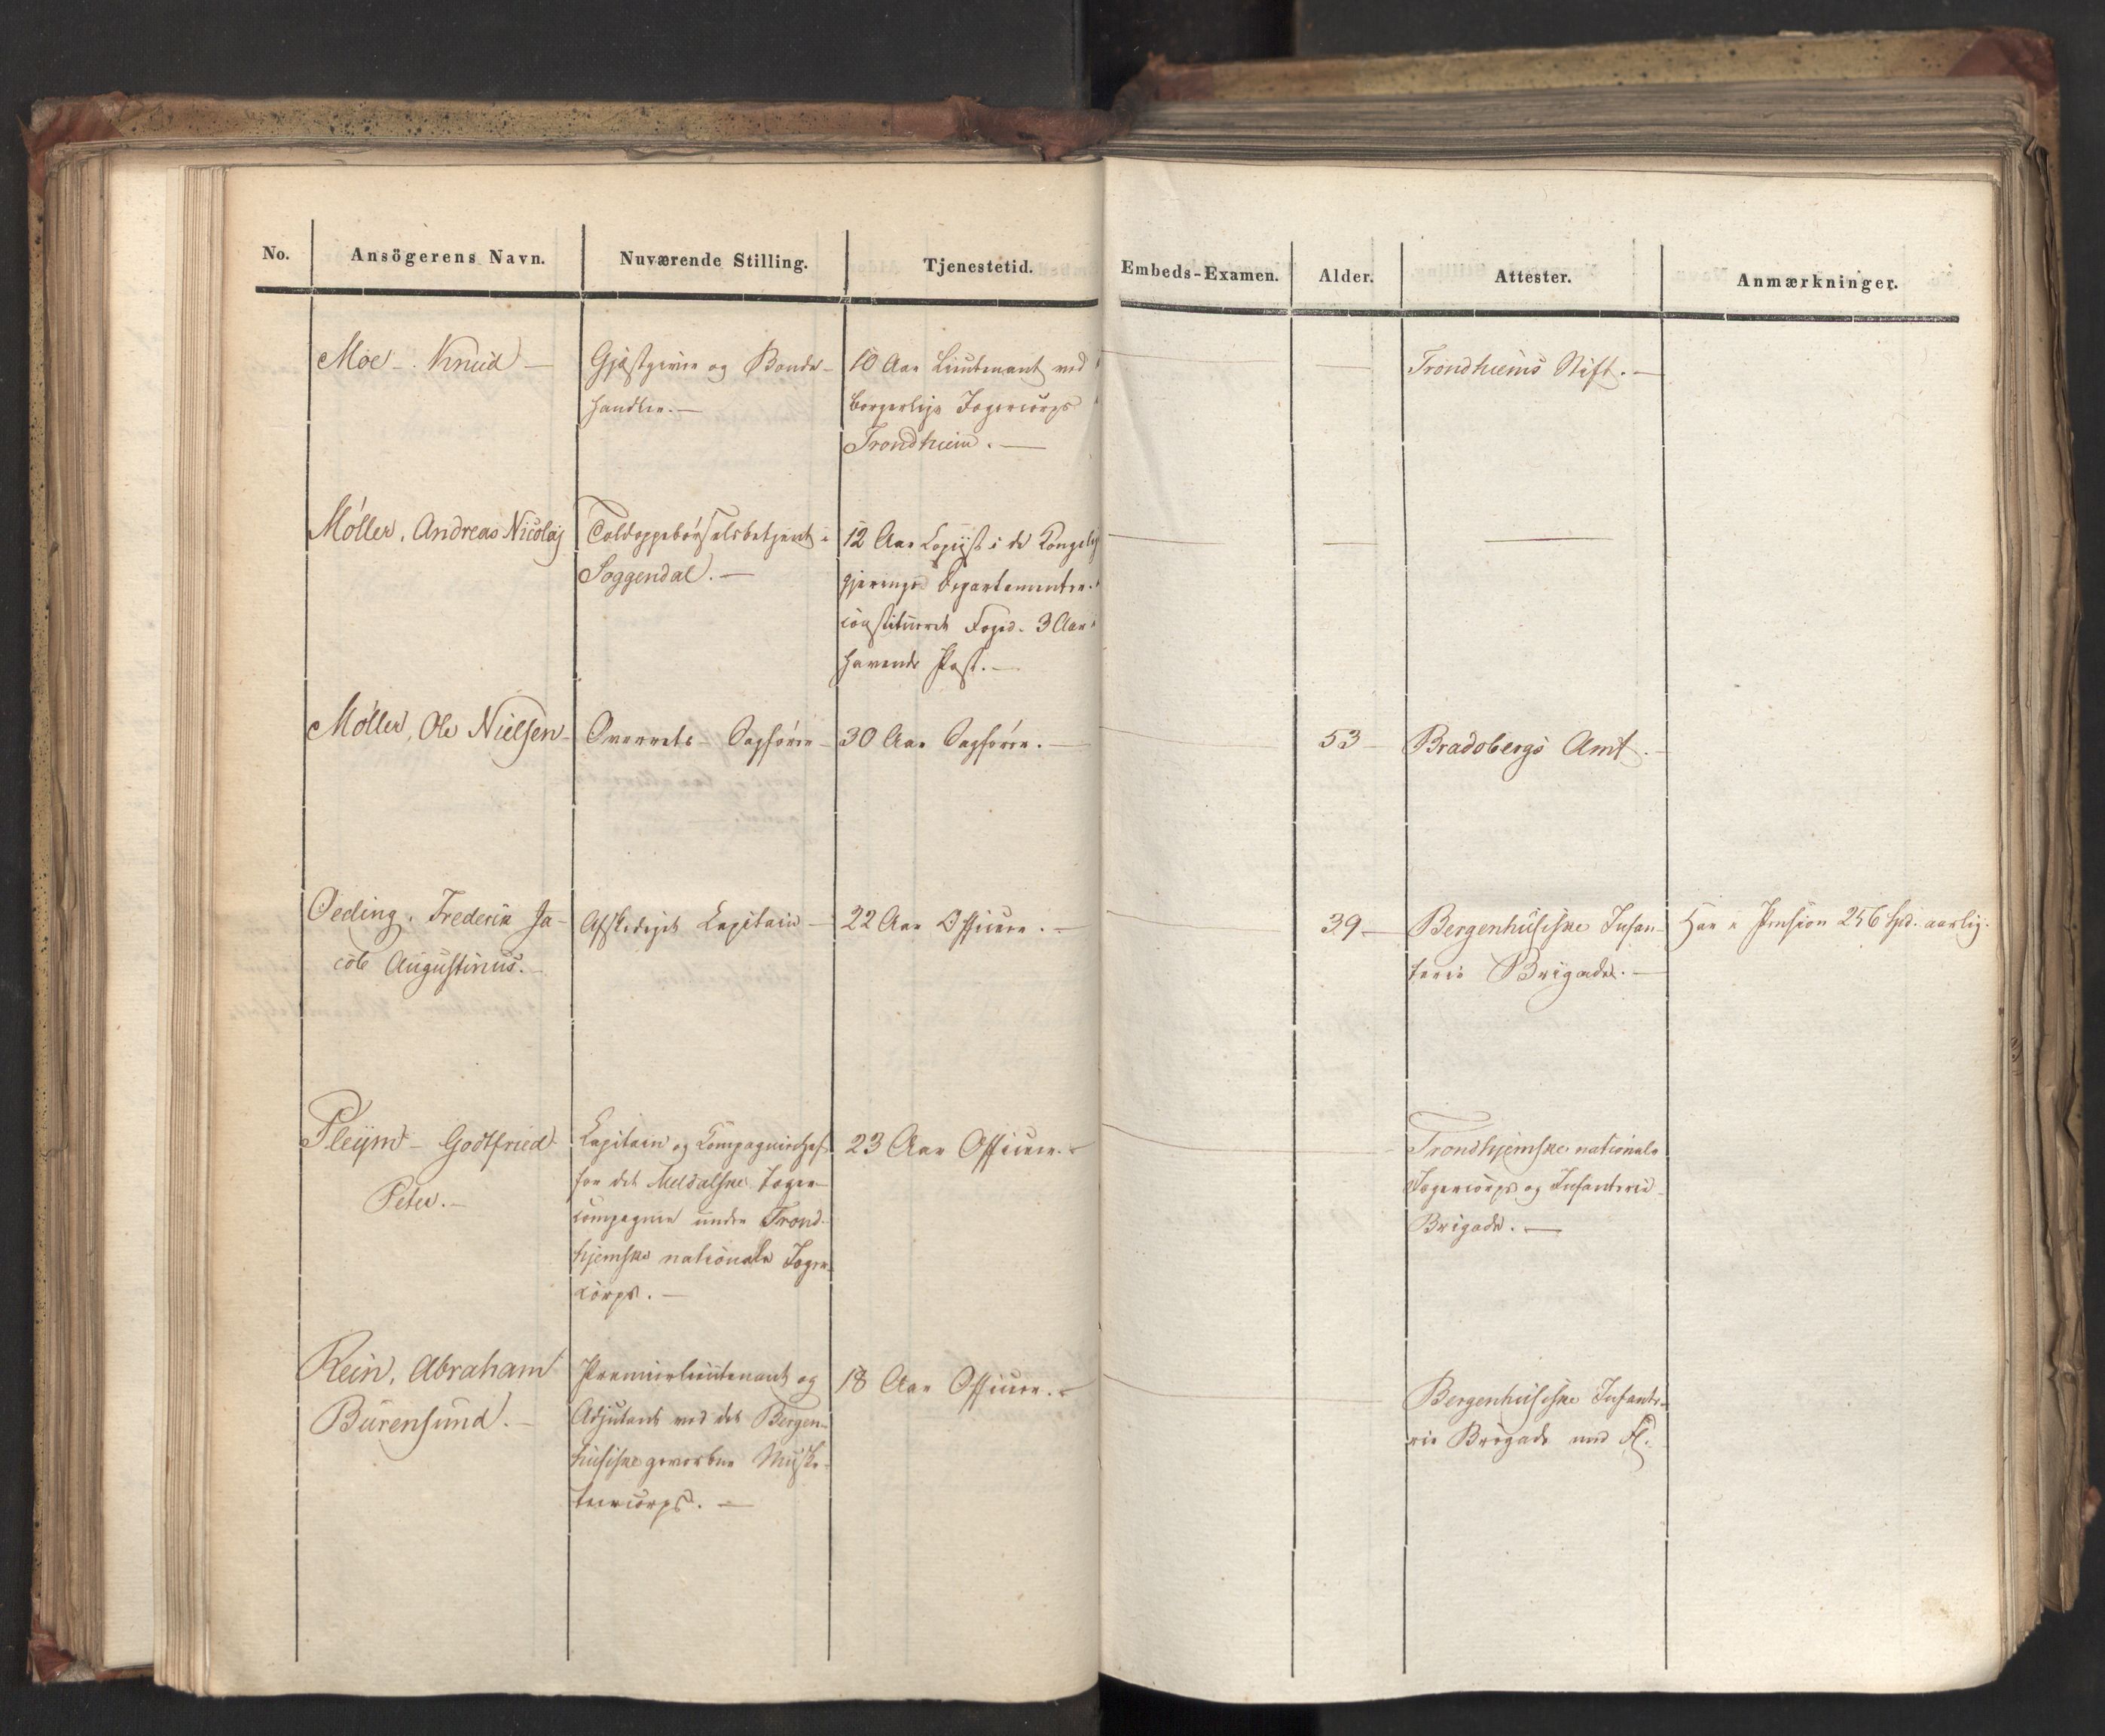 No.
Ansögerens Navn.
Nuværende Stilling.
Tjenestetid.
Embeds-Examen.
Alder.
Attester.
Anmærkninger.
Moe - Knud -
Gjæstgiver og Bonde-
handler. -
10 Aar Lieutenant ved
borgerlige Jægercorps
Trondhiem. -
Trondhiems Stift. -
Møller, Andreas Nicolaj
Toldoppebørselsbetjent i
Soggendal. -
12 Aar Copiist i de Kongelig
gjerings Departementer.
constitueret Foged. 3 Aar
havende Post. -
Møller, Ole Nielsen -
Overrets-Sagfører -
30 Aar Sagfører. -
53 -
Bradsbergs Amt. -
Oeding, Frederik Ja-
cob Augustinus. -
Afskediget Capitain -
22 Aar Officeer. -
39 -
Bergenhusiske Infan-
terie Brigade. -
Har i Pension 256 Spd. aarlig.
Pleym - Godtfried
Peter. -
Capitain og Compagniechef
for det Meldalske Jæger-
compagnie under Trond-
hjemske nationale Jæger-
corps. -
23 Aar Officeer. -
Trondhjemske nationale
Jægercorps og Infanterie-
Brigade. -
Rein, Abraham
Burensund. -
Premierlieutenant og
Adjutant ved det Bergen-
husiske gevorbne Muske-
teercorps. -
18 Aar Officeer. -
Bergenhusiske Infante-
rie Brigade med